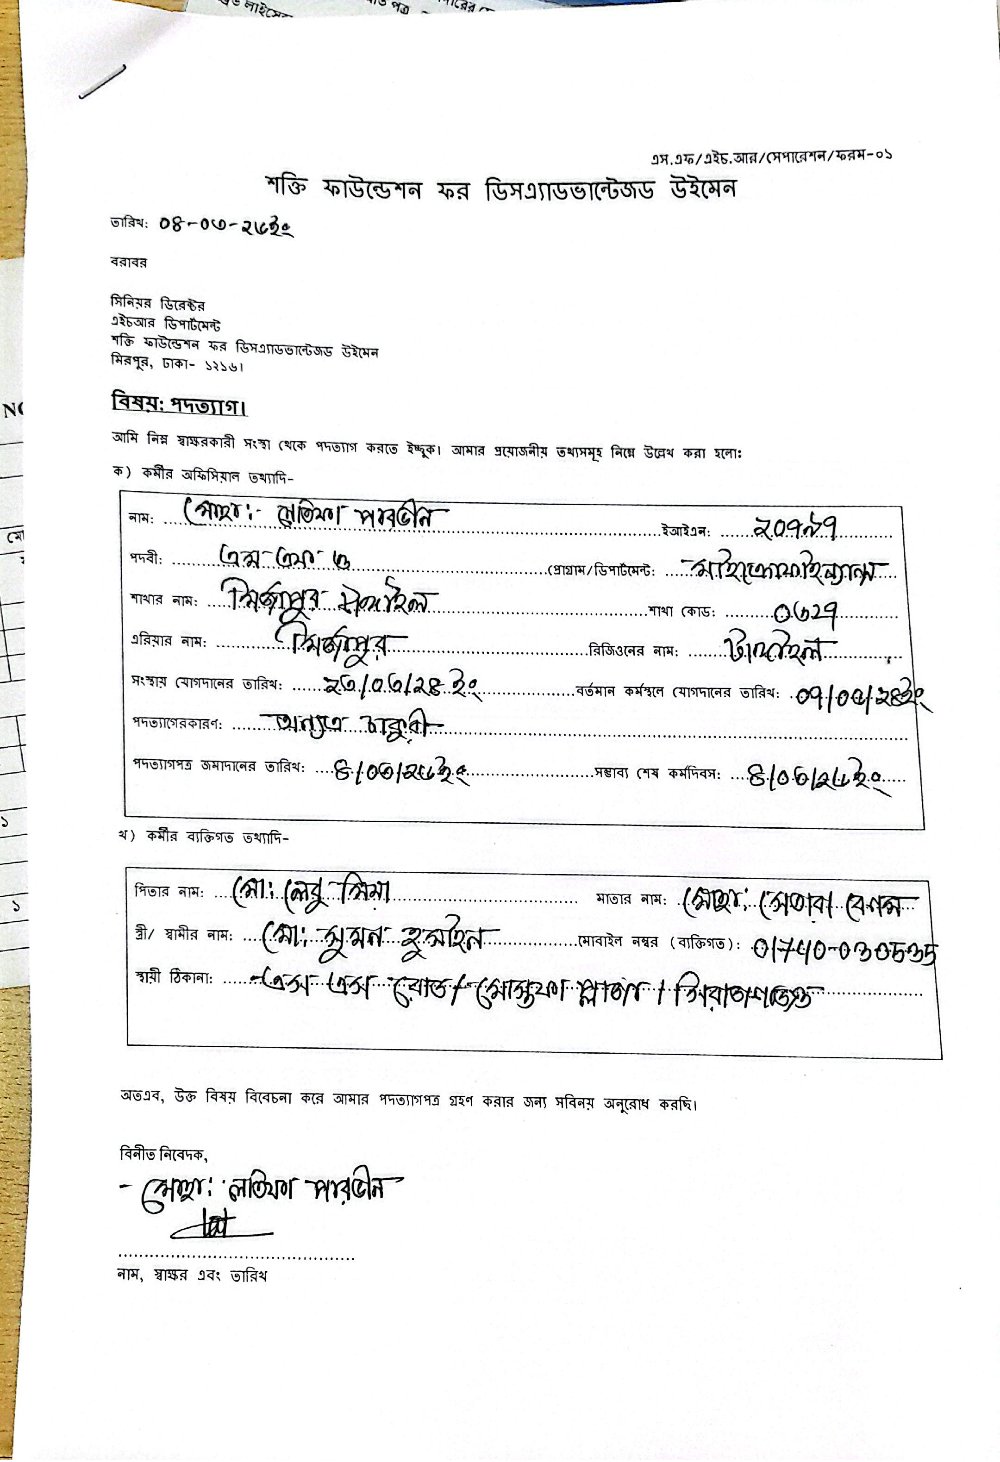 এস.এফ/এইচ.আর/সেপারেশন/ফরম-০১
শক্তি ফাউন্ডেশন ফর ডিসএ্যাডভান্টেজড উইমেন
তারিখ: ০৪-০৩-২৫ইং
বরাবর
সিনিয়র ডিরেক্টর
এইচআর ডিপার্টমেন্ট
শক্তি ফাউন্ডেশন ফর ডিসএ্যাডভান্টেজড উইমেন
মিরপুর, ঢাকা- ১২১৬।
বিষয়: পদত্যাগ।
আমি নিম্ন স্বাক্ষরকারী সংস্থা থেকে পদত্যাগ করতে ইচ্ছুক। আমার প্রয়োজনীয় তথ্যসমূহ নিম্নে উল্লেখ করা হলো:
ক) কর্মীর অফিসিয়াল তথ্যাদি-
নাম: মোছা:- লতিফা পারভীন ইআইএন: ২০৭৯৭
পদবী: এম এফ ও প্রোগ্রাম/ডিপার্টমেন্ট: মাইক্রোফাইন্যান্স
শাখার নাম: মির্জাপুর টাঙ্গাইল শাখা কোড: ০৬২৭
এরিয়ার নাম: মির্জাপুর রিজিওনের নাম: টাঙ্গাইল
সংস্থায় যোগদানের তারিখ: ২৩/০৬/২৪ ইং বর্তমান কর্মস্থলে যোগদানের তারিখ: ০৭/০৫/২৪ইং
পদত্যাগেরকারণ: অন্যত্র চাকুরী
পদত্যাগপত্র জমাদানের তারিখ: ৪/০৩/২৫ইং সম্ভাব্য শেষ কর্মদিবস: ৪/০৩/২৫ইং
খ) কর্মীর ব্যক্তিগত তথ্যাদি-
পিতার নাম: মো: লেবু মিয়া মাতার নাম: মোছা: সেতারা বেগম
স্ত্রী/ স্বামীর নাম: মো: সুমন হুসাইন মোবাইল নম্বর (ব্যক্তিগত): 01740-030535
স্থায়ী ঠিকানা: এস এস রোড/ মোস্তফা প্লাজা / সিরাজগঞ্জ
অতএব, উক্ত বিষয় বিবেচনা করে আমার পদত্যাগপত্র গ্রহণ করার জন্য সবিনয় অনুরোধ করছি।
বিনীত নিবেদক,
- মোছা: লতিফা পারভীন
নাম, স্বাক্ষর এবং তারিখ